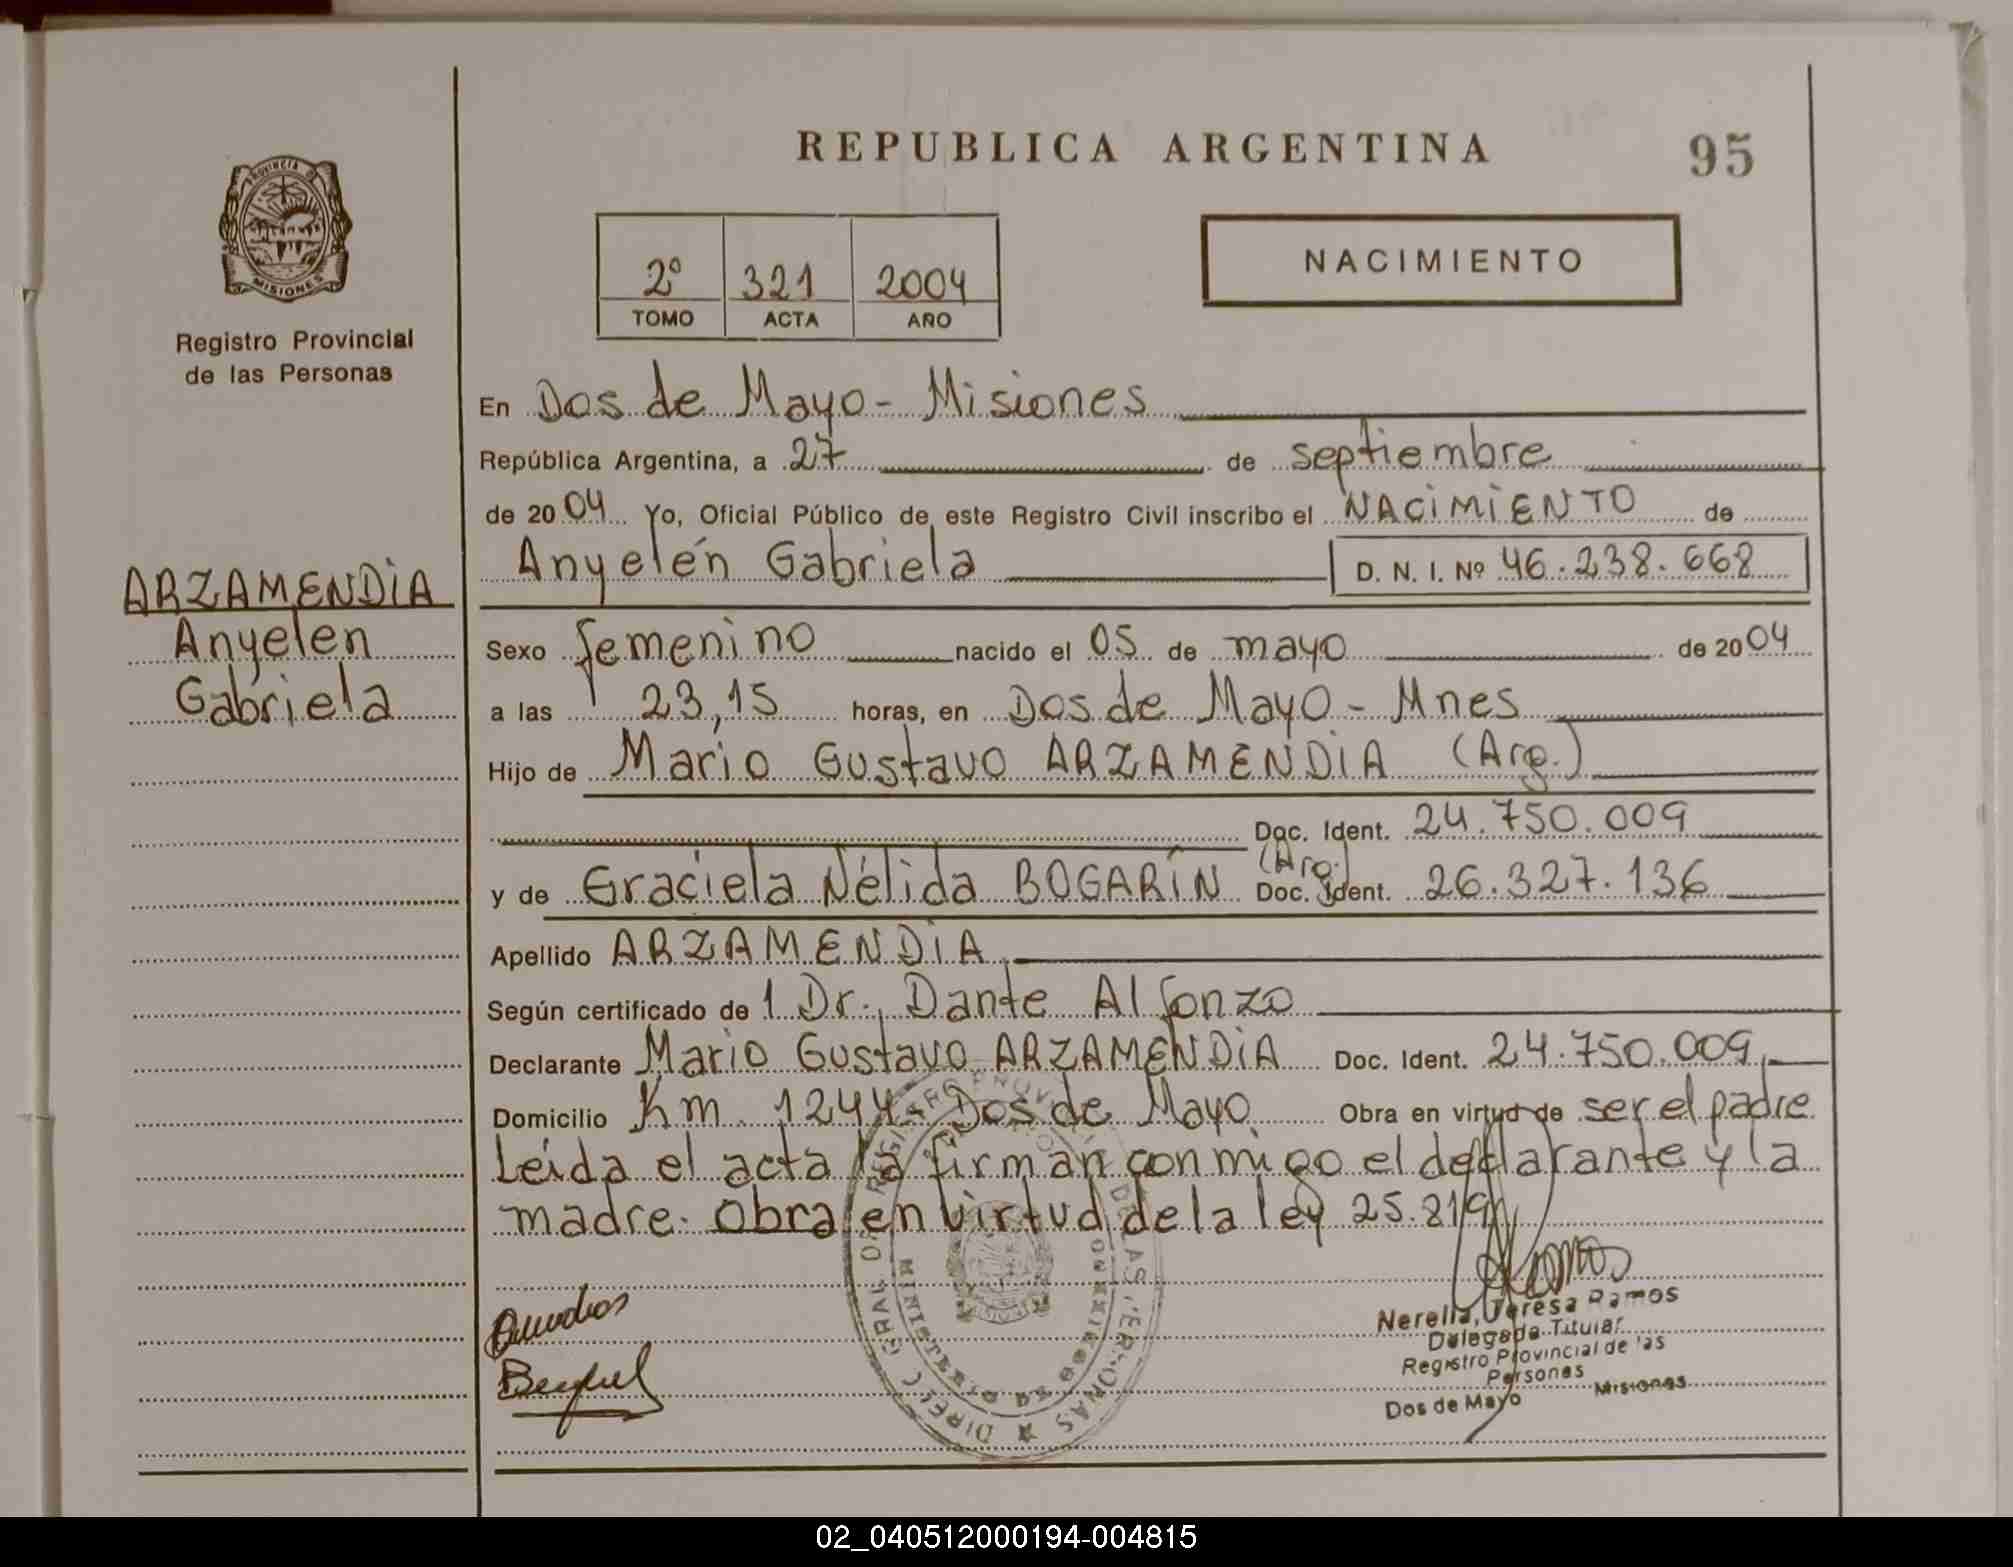 REPUBLICA ARGENTINA
95
PROVINCIA DE
MISIONES
Registro Provincial
de las Personas
2º 321 2004
TOMO ACTA AÑO
NACIMIENTO
En Dos de Mayo - Misiones
República Argentina, a 27 de septiembre
de 2004 Yo, Oficial Público de este Registro Civil inscribo el NACIMIENTO de
Anyelén Gabriela D. N. I. Nº 46.238.668
ARZAMENDIA
Anyelen
Gabriela
Sexo femenino nacido el 05 de mayo de 2004
a las 23,15 horas, en Dos de Mayo - Mnes
Hijo de Mario Gustavo ARZAMENDIA (Arg.)
Doc. Ident. 24.750.009
y de Graciela Nélida BOGARÍN (Arg.) Doc. Ident. 26.327.136
Apellido ARZAMENDIA
Según certificado de 1 Dr. Dante Alfonzo
Declarante Mario Gustavo ARZAMENDIA Doc. Ident. 24.750.009
Domicilio Km. 1244 - Dos de Mayo Obra en virtud de ser el padre
Leída el acta la firman conmigo el declarante y la
madre. Obra en virtud de la ley 25.819
Nerella Teresa Ramos
Delegada Titular
Registro Provincial de las
Personas
Dos de Mayo Misiones
02_040512000194-004815